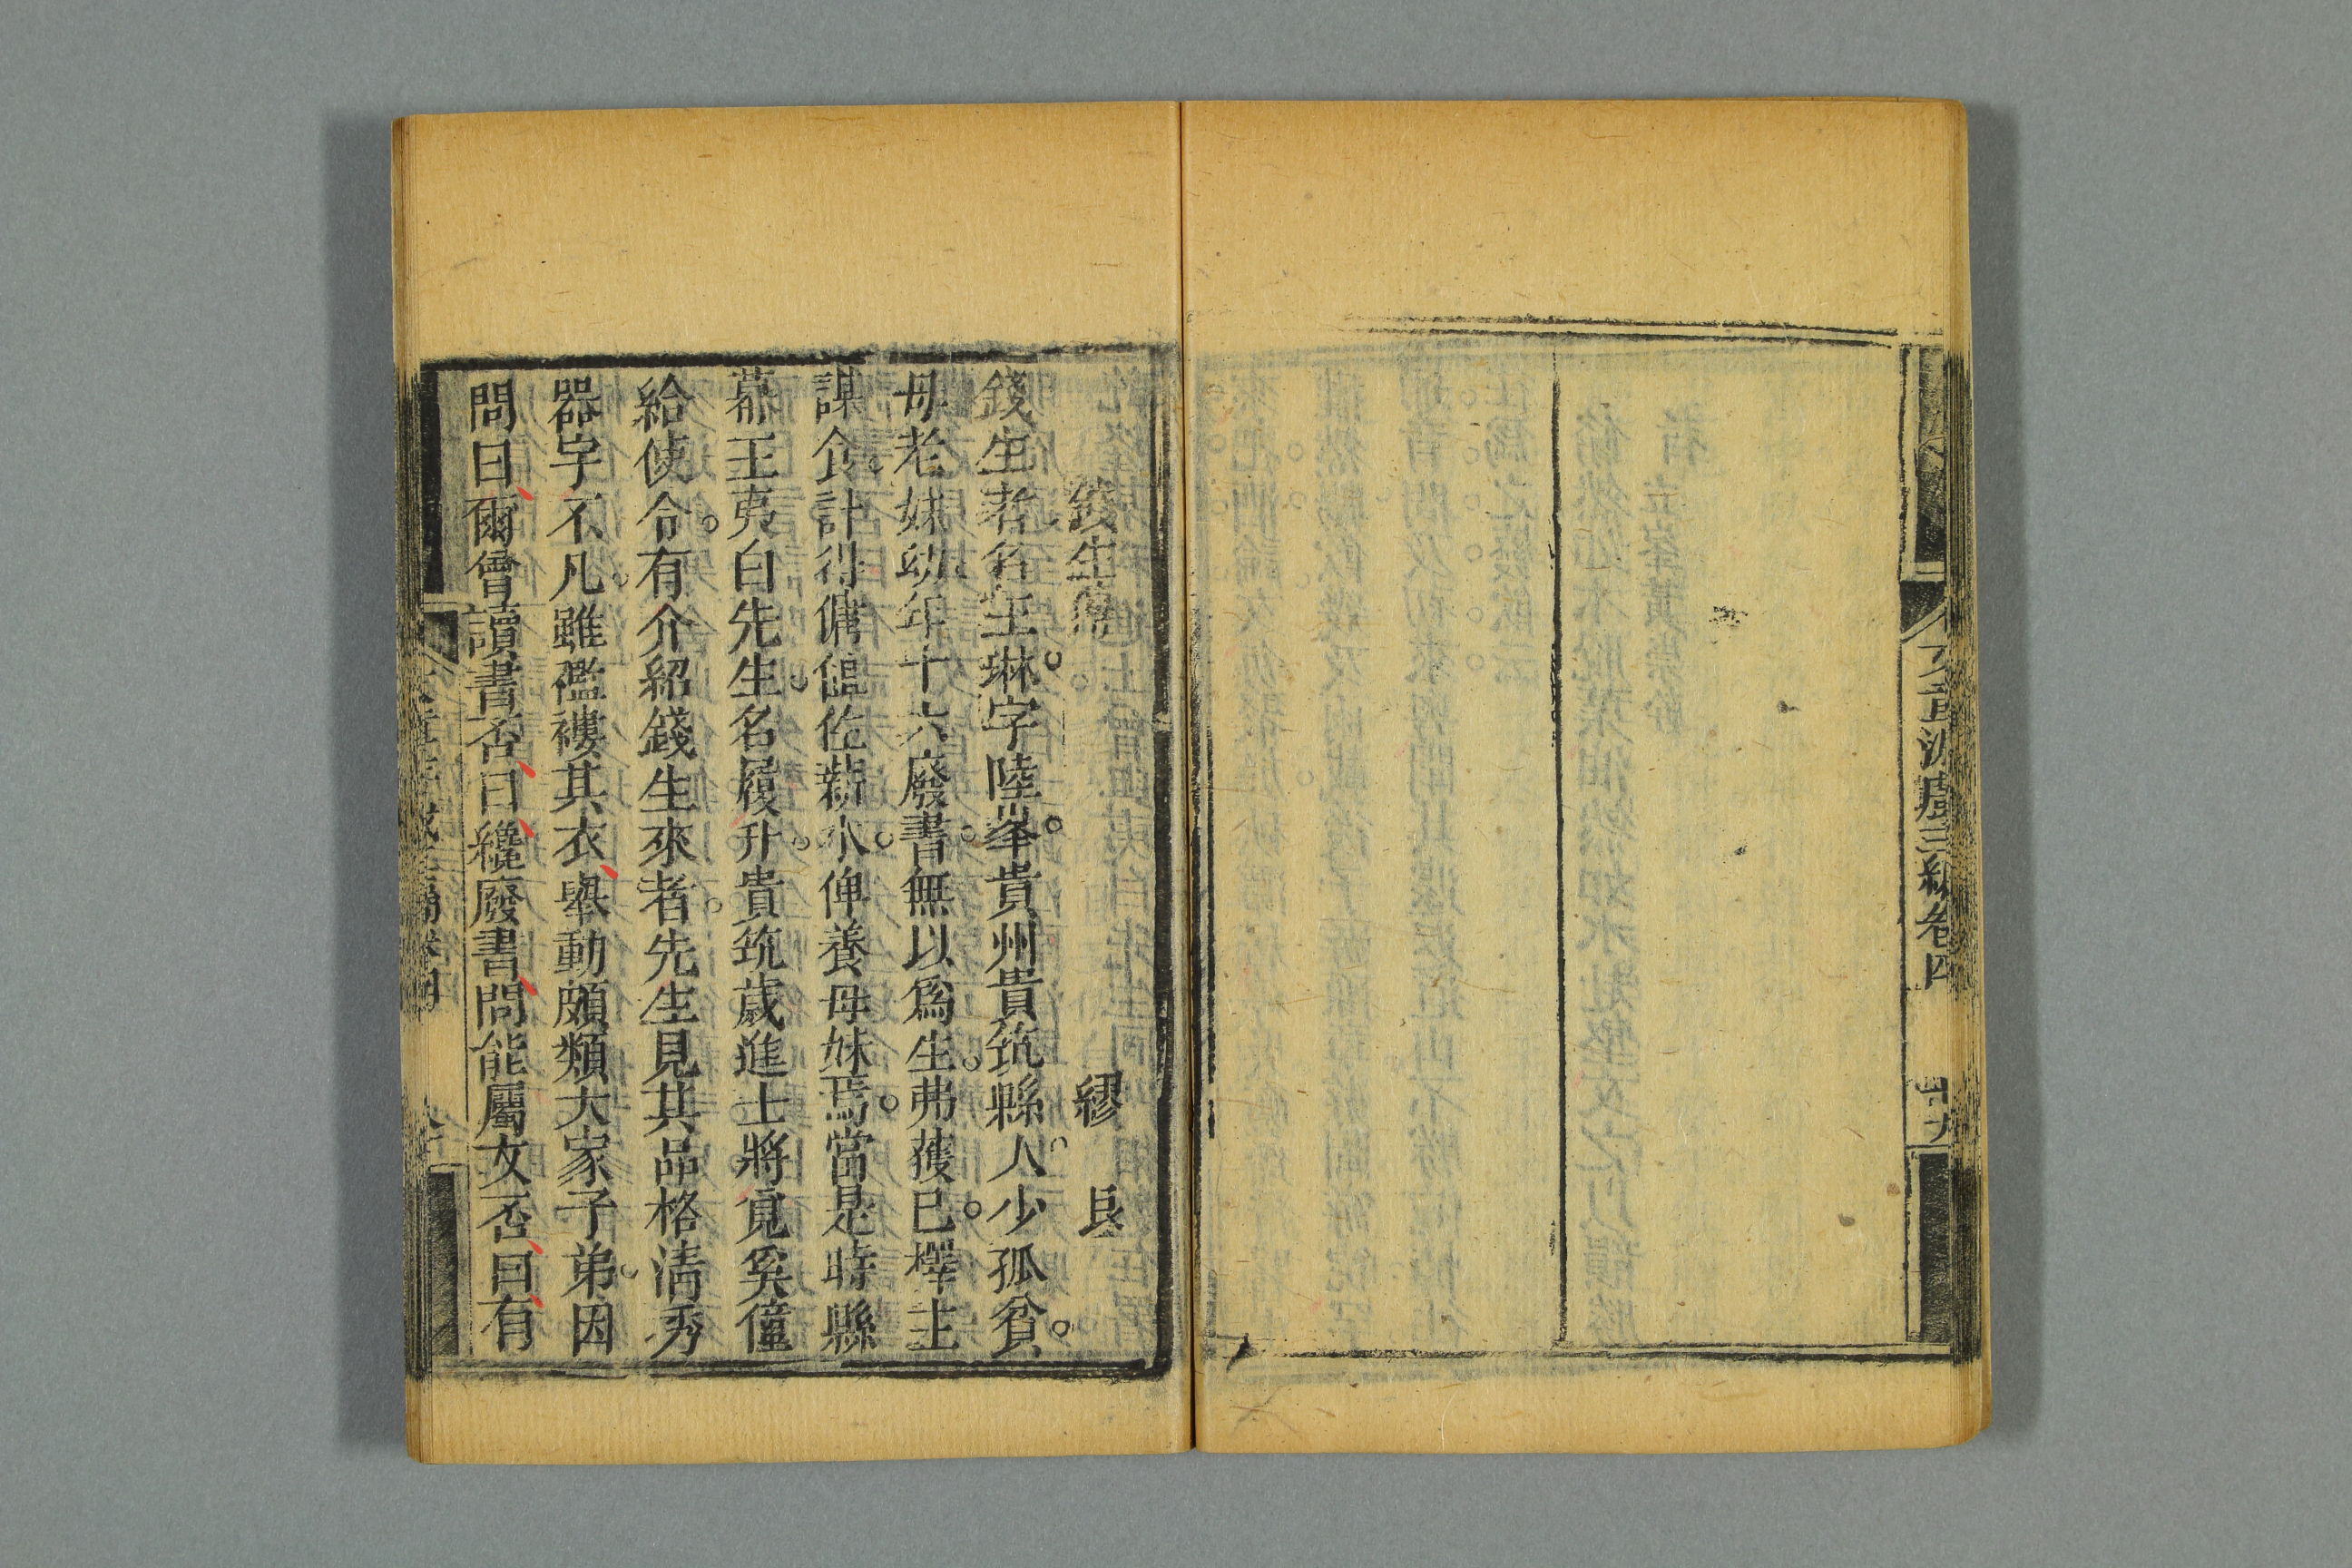 文章游戲三編卷四
十九
錢生傳
繆
艮
錢生者名玉琳字陸峯貴州貴筑縣人少孤貧
母老妹幼年十六廢書無以爲生弗獲已檡主
謀食計得傭館佐薪水俾養母妹焉當是時縣
幕王夷白先生名履升貴筑歲進士將覔奚僮
給使令有介紹錢生來者先生見其品格清秀
器宇不凡雖襤褸其衣舉動頗類大家子弟因
問曰爾曾讀書否曰纔廢書問能屬文否曰有